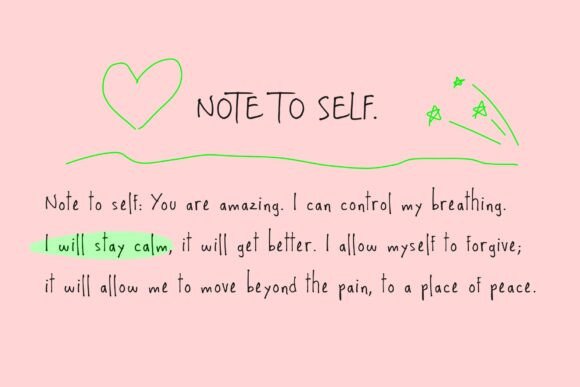 NOTE TO SELF.
Note to self: You are amazing. I can control my breathing.
I will stay calm, it will get better. I allow myself to forgive;
it will allow me to move beyond the pain, to a place of peace.